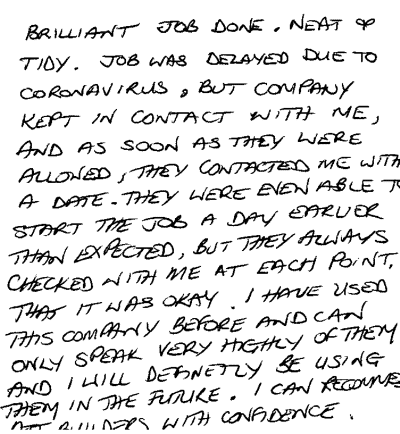 BRILLIANT JOB DONE. NEAT &
TIDY. JOB WAS DELAYED DUE TO
CORONAVIRUS, BUT COMPANY
KEPT IN CONTACT WITH ME,
AND AS SOON AS THEY WERE
ALLOWED, THEY CONTACTED ME WITH
A DATE. THEY WERE EVEN ABLE TO
START THE JOB A DAY EARLIER
THAN EXPECTED, BUT THEY ALWAYS
CHECKED WITH ME AT EACH POINT,
THAT IT WAS OKAY. I HAVE USED
THIS COMPANY BEFORE AND CAN
ONLY SPEAK VERY HIGHLY OF THEM
AND I WILL DEFINETLY BE USING
THEM IN THE FUTURE. I CAN RECOMMEND
BUILDERS WITH CONFIDENCE.